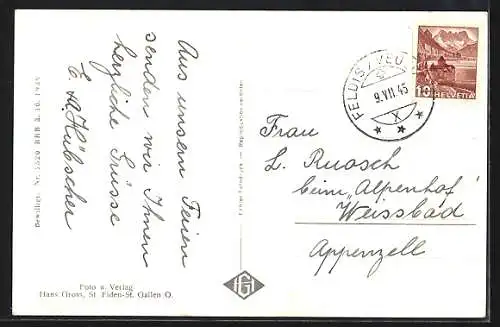 Aus unsern Ferien
senden wir Ihnen
herzliche Grüsse
E. A. Hübscher
Bewilligt. Nr. 5520 BRB 3. 10. 1939
Foto u. Verlag
Hans Gross, St. Fiden-St. Gallen O.
FELDIS / VEU
9.VII.45
X
10 HELVETIA
Frau
L. Ruosch
beim „Alpenhof"
Weissbad
Appenzell